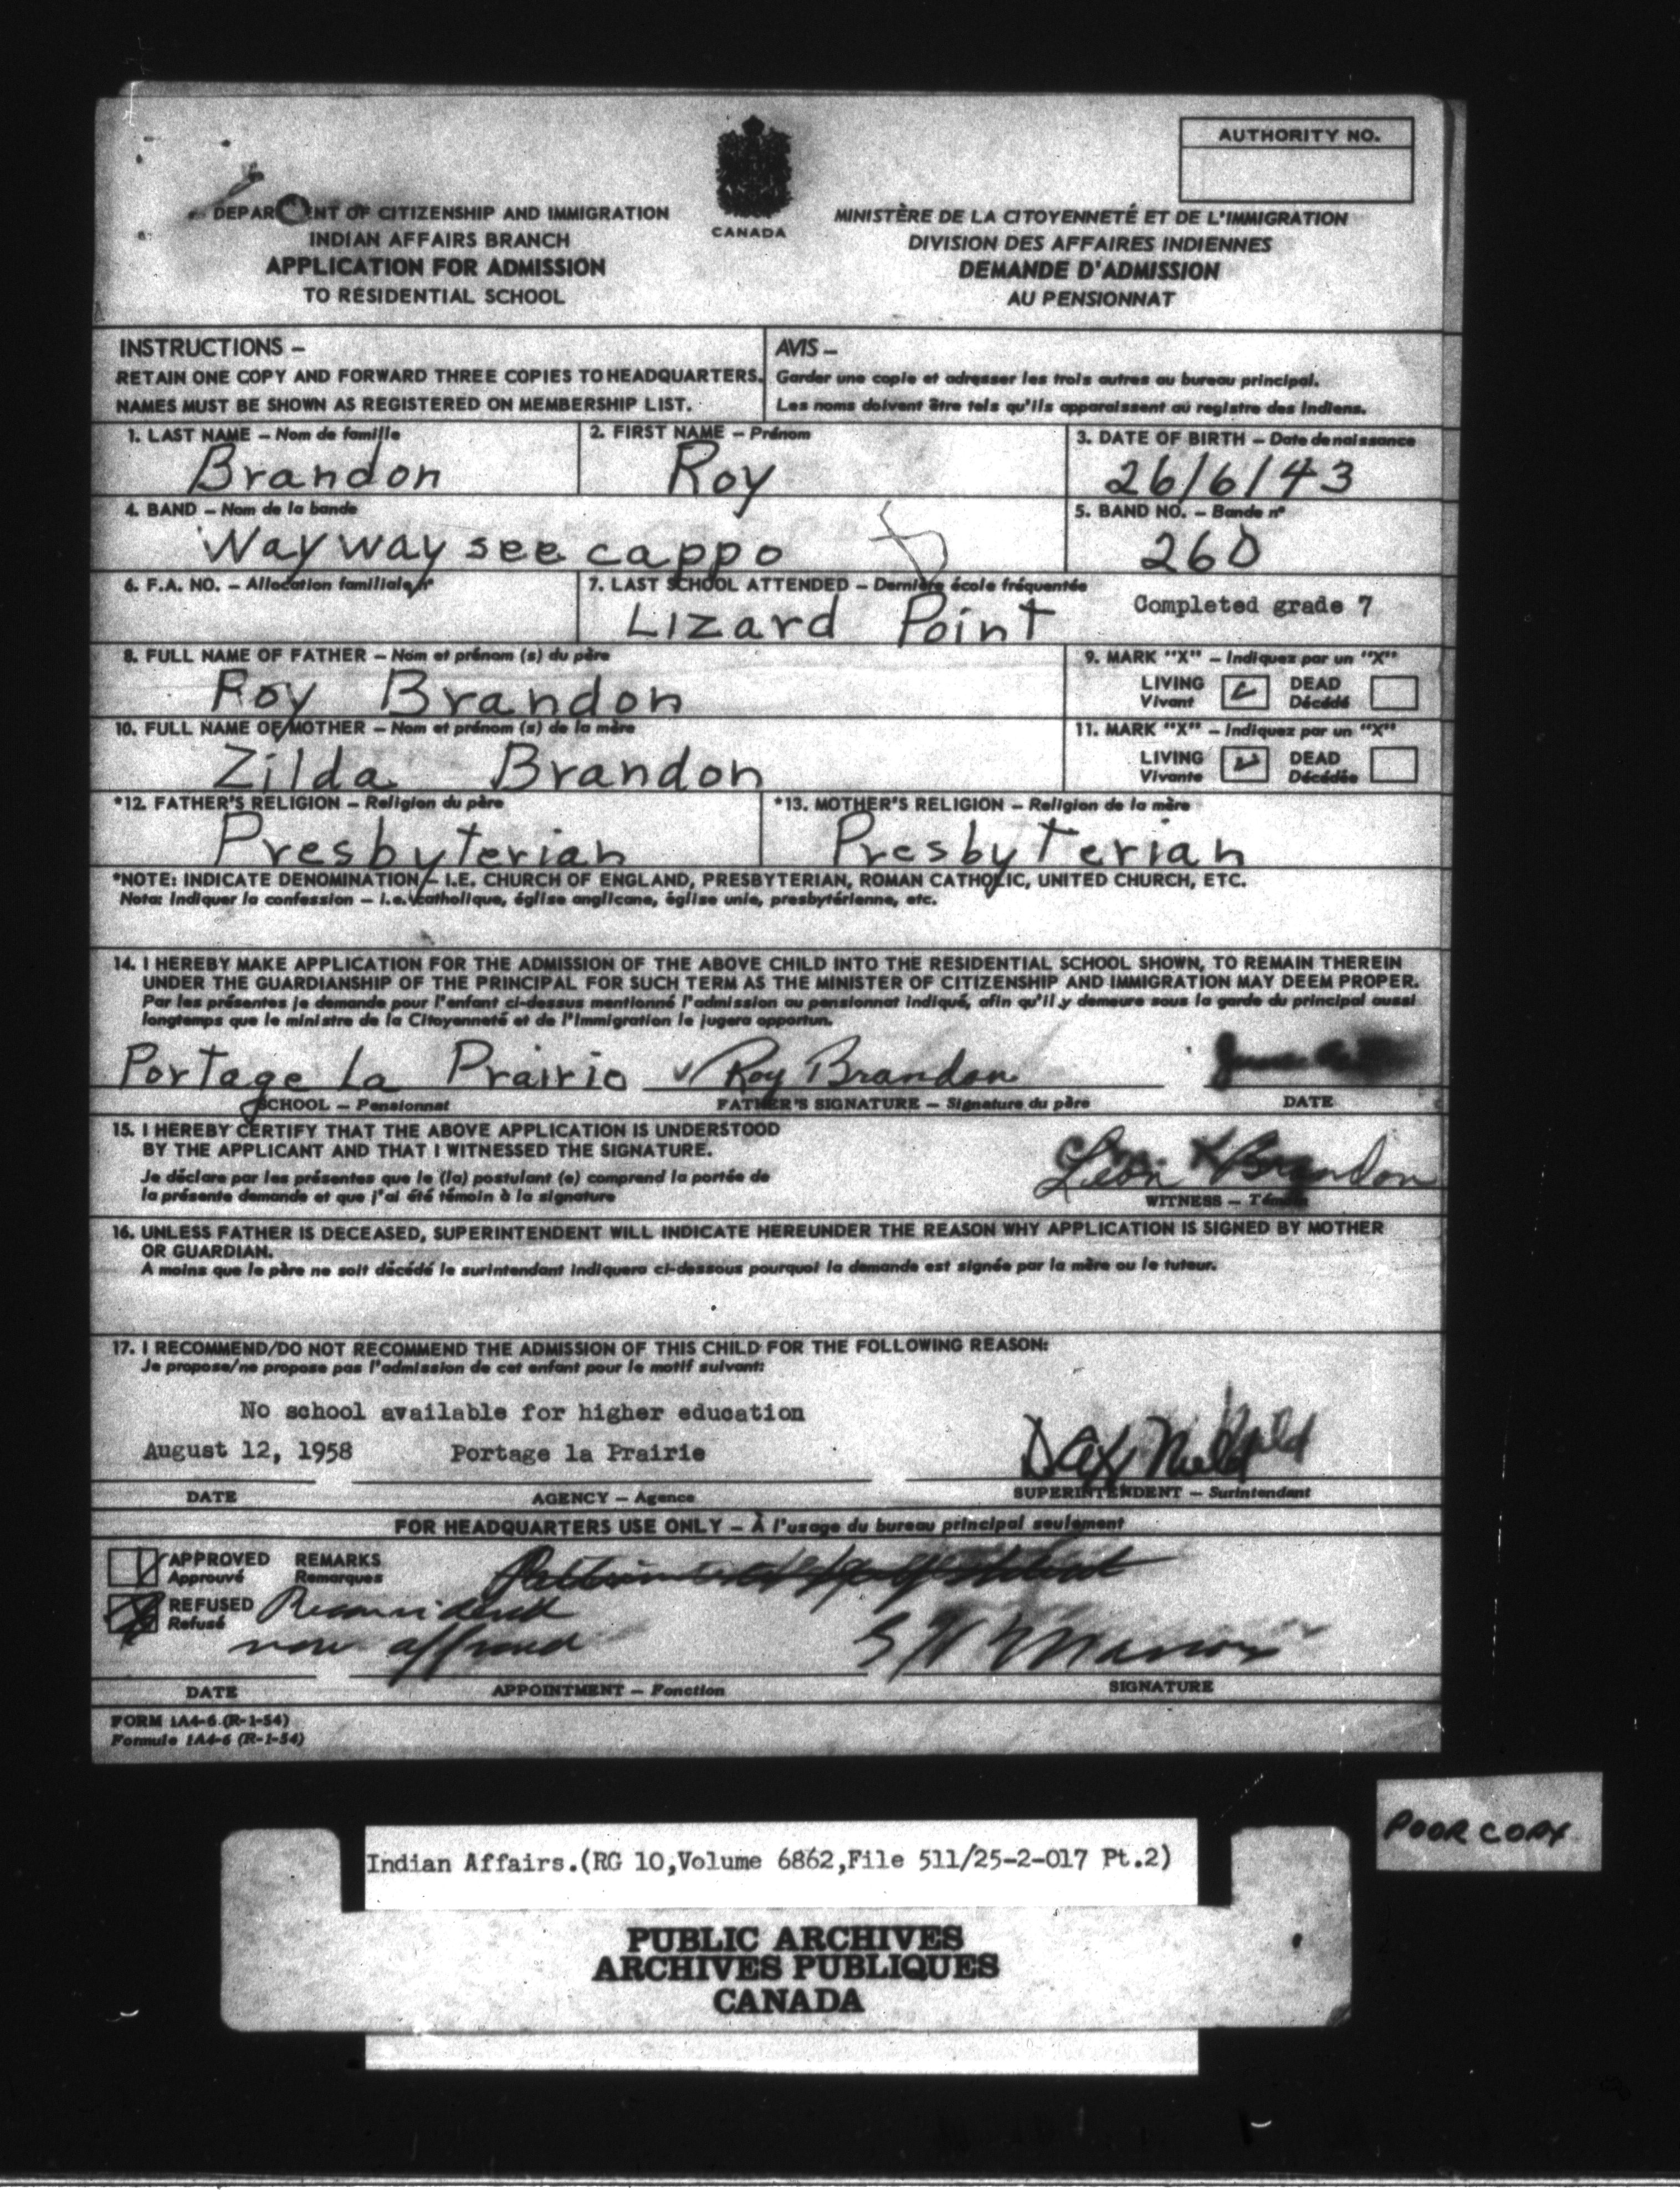 AUTHORITY NO.
DEPAR NT OF CITIZENSHIP AND IMMIGRATION
INDIAN AFFAIRS BRANCH
APPLICATION FOR ADMISSION
TO RESIDENTIAL SCHOOL
CANADA
MINISTÈRE DE LA CITOYENNETÉ ET DE L'IMMIGRATION
DIVISION DES AFFAIRES INDIENNES
DEMANDE D'ADMISSION
AU PENSIONNAT
INSTRUCTIONS –
RETAIN ONE COPY AND FORWARD THREE COPIES TO HEADQUARTERS.
NAMES MUST BE SHOWN AS REGISTERED ON MEMBERSHIP LIST.
AVIS –
Garder une copie et adresser les trois autres au bureau principal.
Les noms doivent être tels qu'ils apparaissent au registre des Indiens.
1. LAST NAME – Nom de famille
Brandon
2. FIRST NAME – Prénom
Roy
3. DATE OF BIRTH – Date de naissance
26/6/43
4. BAND – Nom de la bande
Waywayseecappo
5. BAND NO. – Bande nº
260
6. F.A. NO. – Allocation familiale nº
7. LAST SCHOOL ATTENDED – Dernière école fréquentée
Lizard Point
Completed grade 7
8. FULL NAME OF FATHER – Nom et prénom (s) du père
Roy Brandon
9. MARK "X" – Indiquez par un "X"
LIVING DEAD
Vivant Décédé
10. FULL NAME OF MOTHER – Nom et prénom (s) de la mère
Zilda Brandon
11. MARK "X" – Indiquez par un "X"
LIVING DEAD
Vivante Décédée
*12. FATHER'S RELIGION – Religion du père
Presbyterian
*13. MOTHER'S RELIGION – Religion de la mère
Presbyterian
*NOTE: INDICATE DENOMINATION – I.E. CHURCH OF ENGLAND, PRESBYTERIAN, ROMAN CATHOLIC, UNITED CHURCH, ETC.
Nota: Indiquer la confession – i.e. catholique, église anglicane, église unie, presbytérienne, etc.
14. I HEREBY MAKE APPLICATION FOR THE ADMISSION OF THE ABOVE CHILD INTO THE RESIDENTIAL SCHOOL SHOWN, TO REMAIN THEREIN
UNDER THE GUARDIANSHIP OF THE PRINCIPAL FOR SUCH TERM AS THE MINISTER OF CITIZENSHIP AND IMMIGRATION MAY DEEM PROPER.
Par les présentes je demande pour l'enfant ci-dessus mentionné l'admission au pensionnat indiqué, afin qu'il y demeure sous la garde du principal aussi
longtemps que le ministre de la Citoyenneté et de l'Immigration le jugera opportun.
Portage La Prairie Roy Brandon June
SCHOOL – Pensionnat FATHER'S SIGNATURE – Signature du père DATE
15. I HEREBY CERTIFY THAT THE ABOVE APPLICATION IS UNDERSTOOD
BY THE APPLICANT AND THAT I WITNESSED THE SIGNATURE.
Je déclare par les présentes que le (la) postulant (e) comprend la portée de
la présente demande et que j'ai été témoin à la signature
Leon Brandon
WITNESS – Témoin
16. UNLESS FATHER IS DECEASED, SUPERINTENDENT WILL INDICATE HEREUNDER THE REASON WHY APPLICATION IS SIGNED BY MOTHER
OR GUARDIAN.
A moins que le père ne soit décédé le surintendant indiquera ci-dessous pourquoi la demande est signée par la mère ou le tuteur.
17. I RECOMMEND/DO NOT RECOMMEND THE ADMISSION OF THIS CHILD FOR THE FOLLOWING REASON:
Je propose/ne propose pas l'admission de cet enfant pour le motif suivant:
No school available for higher education
August 12, 1958 Portage la Prairie
DATE AGENCY – Agence SUPERINTENDENT – Surintendant
FOR HEADQUARTERS USE ONLY – À l'usage du bureau principal seulement
APPROVED REMARKS
Approuvé Remarques
REFUSED Reconsidered
Refusé
now approved
DATE APPOINTMENT – Fonction SIGNATURE
FORM 1A4-6 (R-1-54)
Formule 1A4-6 (R-1-54)
POOR COPY
Indian Affairs.(RG 10,Volume 6862,File 511/25-2-017 Pt.2)
PUBLIC ARCHIVES
ARCHIVES PUBLIQUES
CANADA